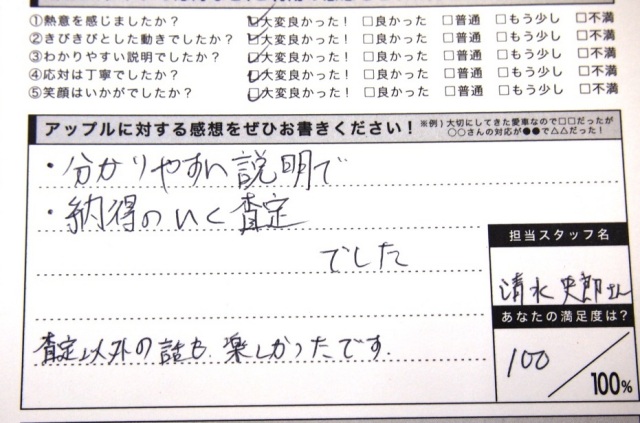 ①熱意を感じましたか? ☑大変良かった! □良かった □普通 □もう少し □不満
②きびきびとした動きでしたか? ☑大変良かった! □良かった □普通 □もう少し □不満
③わかりやすい説明でしたか? ☑大変良かった! □良かった □普通 □もう少し □不満
④応対は丁寧でしたか? ☑大変良かった! □良かった □普通 □もう少し □不満
⑤笑顔はいかがでしたか? ☑大変良かった! □良かった □普通 □もう少し □不満
アップルに対する感想をぜひお書きください! ※例)大切にしてきた愛車なので□□だったが
○○さんの対応が●●で△△だった!
・分かりやすい説明で
・納得のいく査定
でした
査定以外の話も楽しかったです.
担当スタッフ名
清水 史郎さん
あなたの満足度は?
100/100%